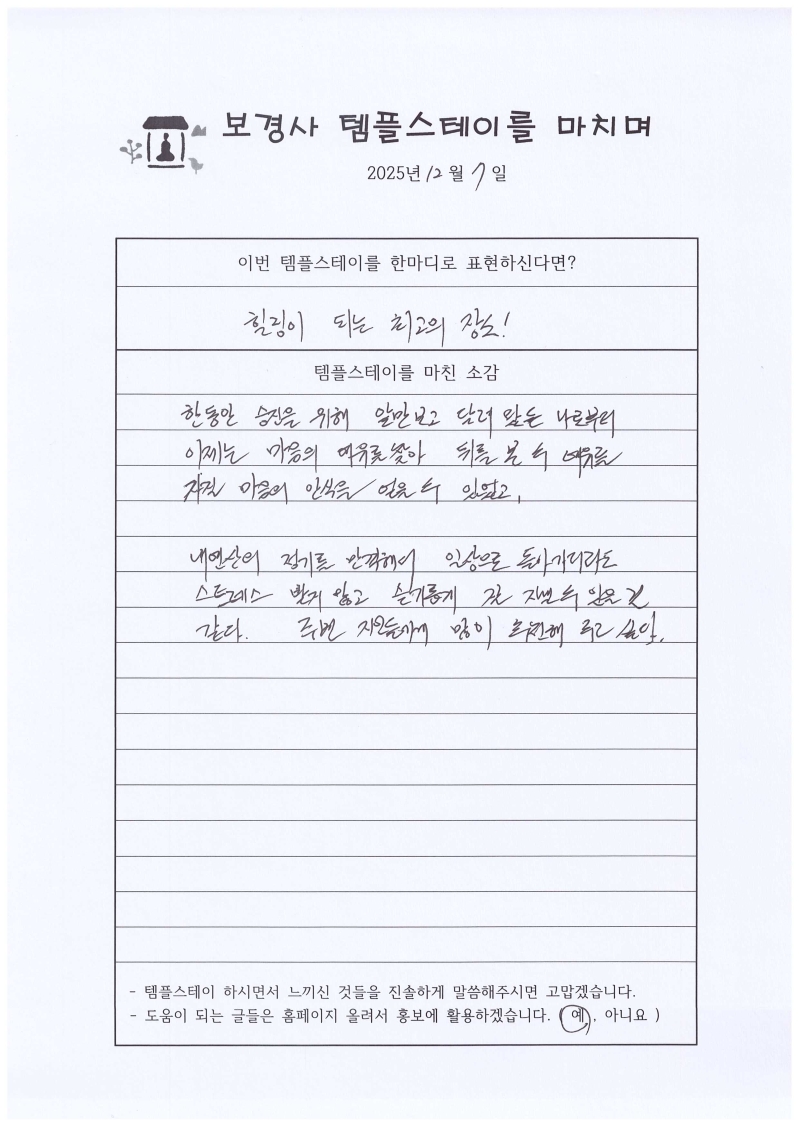 보경사 템플스테이를 마치며
2025년 12월 7일
이번 템플스테이를 한마디로 표현하신다면?
힐링이 되는 최고의 장소!
템플스테이를 마친 소감
한동안 승진을 위해 앞만보고 달려 왔던 나로부터
이제는 마음의 여유를 찾아 뒤를 볼 수 여유를
가질 마음의 안식을 얻을 수 있었고,
내연산의 정기를 만끽해서 일상으로 돌아가더라도
스트레스 받지 않고 슬기롭게 잘 지낼 수 있을 것
같다. 주변 지인들에게 많이 추천해 주고 싶다.
- 템플스테이 하시면서 느끼신 것들을 진솔하게 말씀해주시면 고맙겠습니다.
- 도움이 되는 글들은 홈페이지 올려서 홍보에 활용하겠습니다. ( 예, 아니요 )